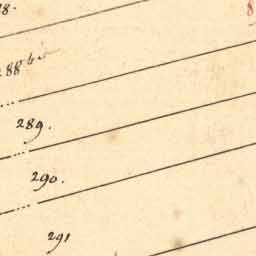 8.
8
288 bis
289.
290.
291